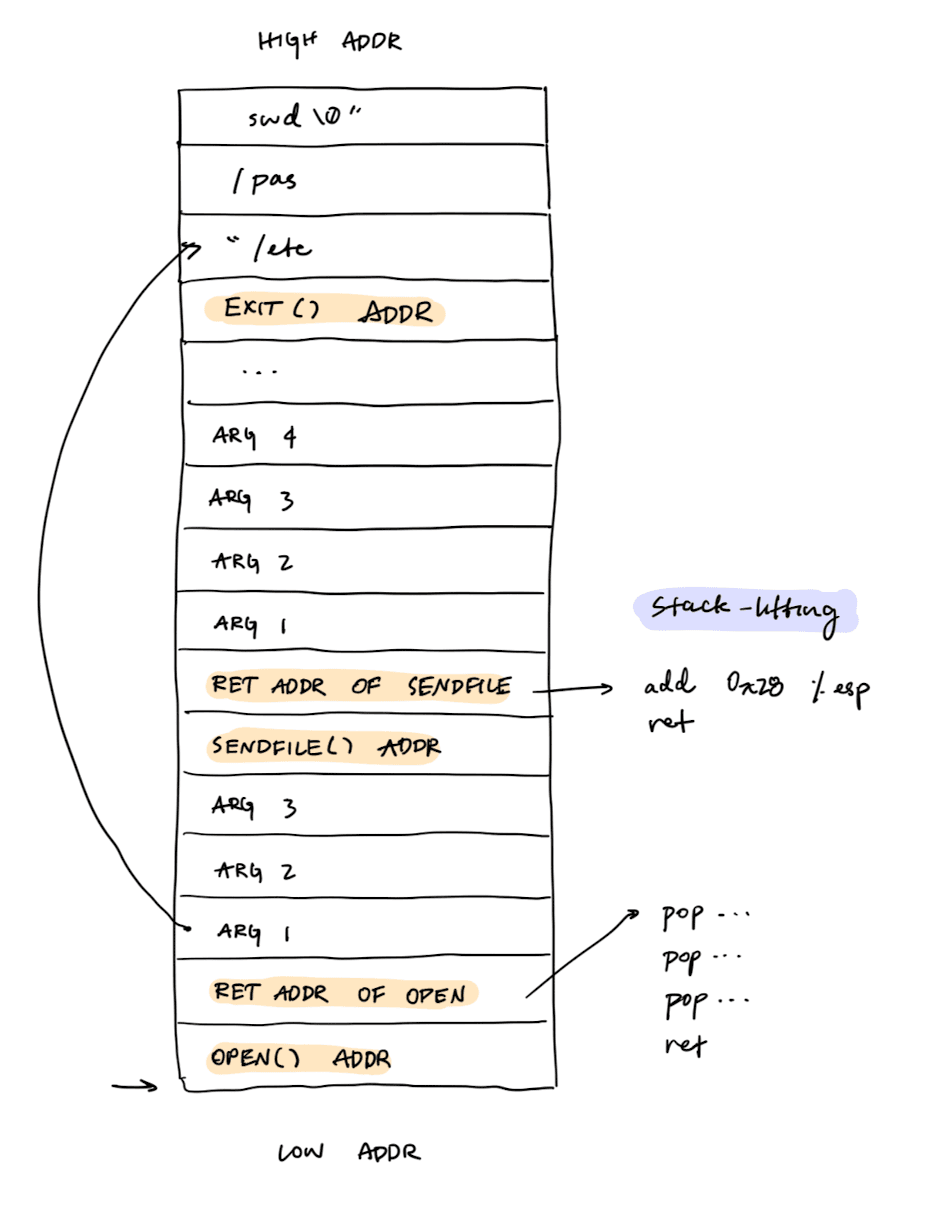 HIGH ADDR
swd \0"
/pas
" /etc
EXIT() ADDR
...
ARG 4
ARG 3
ARG 2
ARG 1
Stack-lifting
RET ADDR OF SENDFILE
add 0x28 %esp
ret
SENDFILE() ADDR
ARG 3
ARG 2
ARG 1
pop ...
pop ...
pop ...
ret
RET ADDR OF OPEN
OPEN() ADDR
LOW ADDR